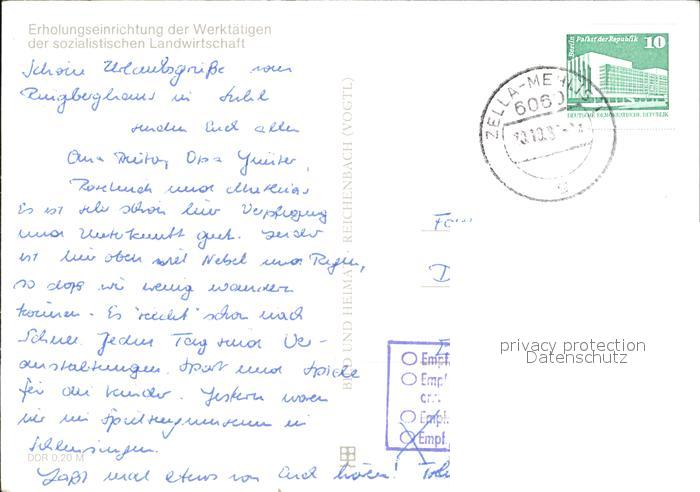 Erholungseinrichtung der Werktätigen
der sozialistischen Landwirtschaft
Schöne Urlaubsgrüße vom
Ringberghaus in Suhl
senden Euch allen
Oma Opa Günter,
und Matthias
Es ist sehr schön hier Verpflegung
und Unterkunft gut. Leider
ist hier oben viel Nebel und Regen,
so daß wir wenig wandern
können. Es "riecht" schon nach
Schnee. Jeden Tag sind Ver-
anstaltungen. Sport und Spiele
für die Kinder. Gestern waren
wir im Spielzeugmuseum in
Schleusingen.
Laßt mal etwas von Euch hören!
DDR 0,20 M
BILD UND HEIMAT REICHENBACH (VOGTL)
Berlin Palast der Republik 10
DEUTSCHE DEMOKRATISCHE REPUBLIK
ZELLA-MEHLIS 1
6060
Empf
Empf
Empf
Empf
privacy protection
Datenschutz